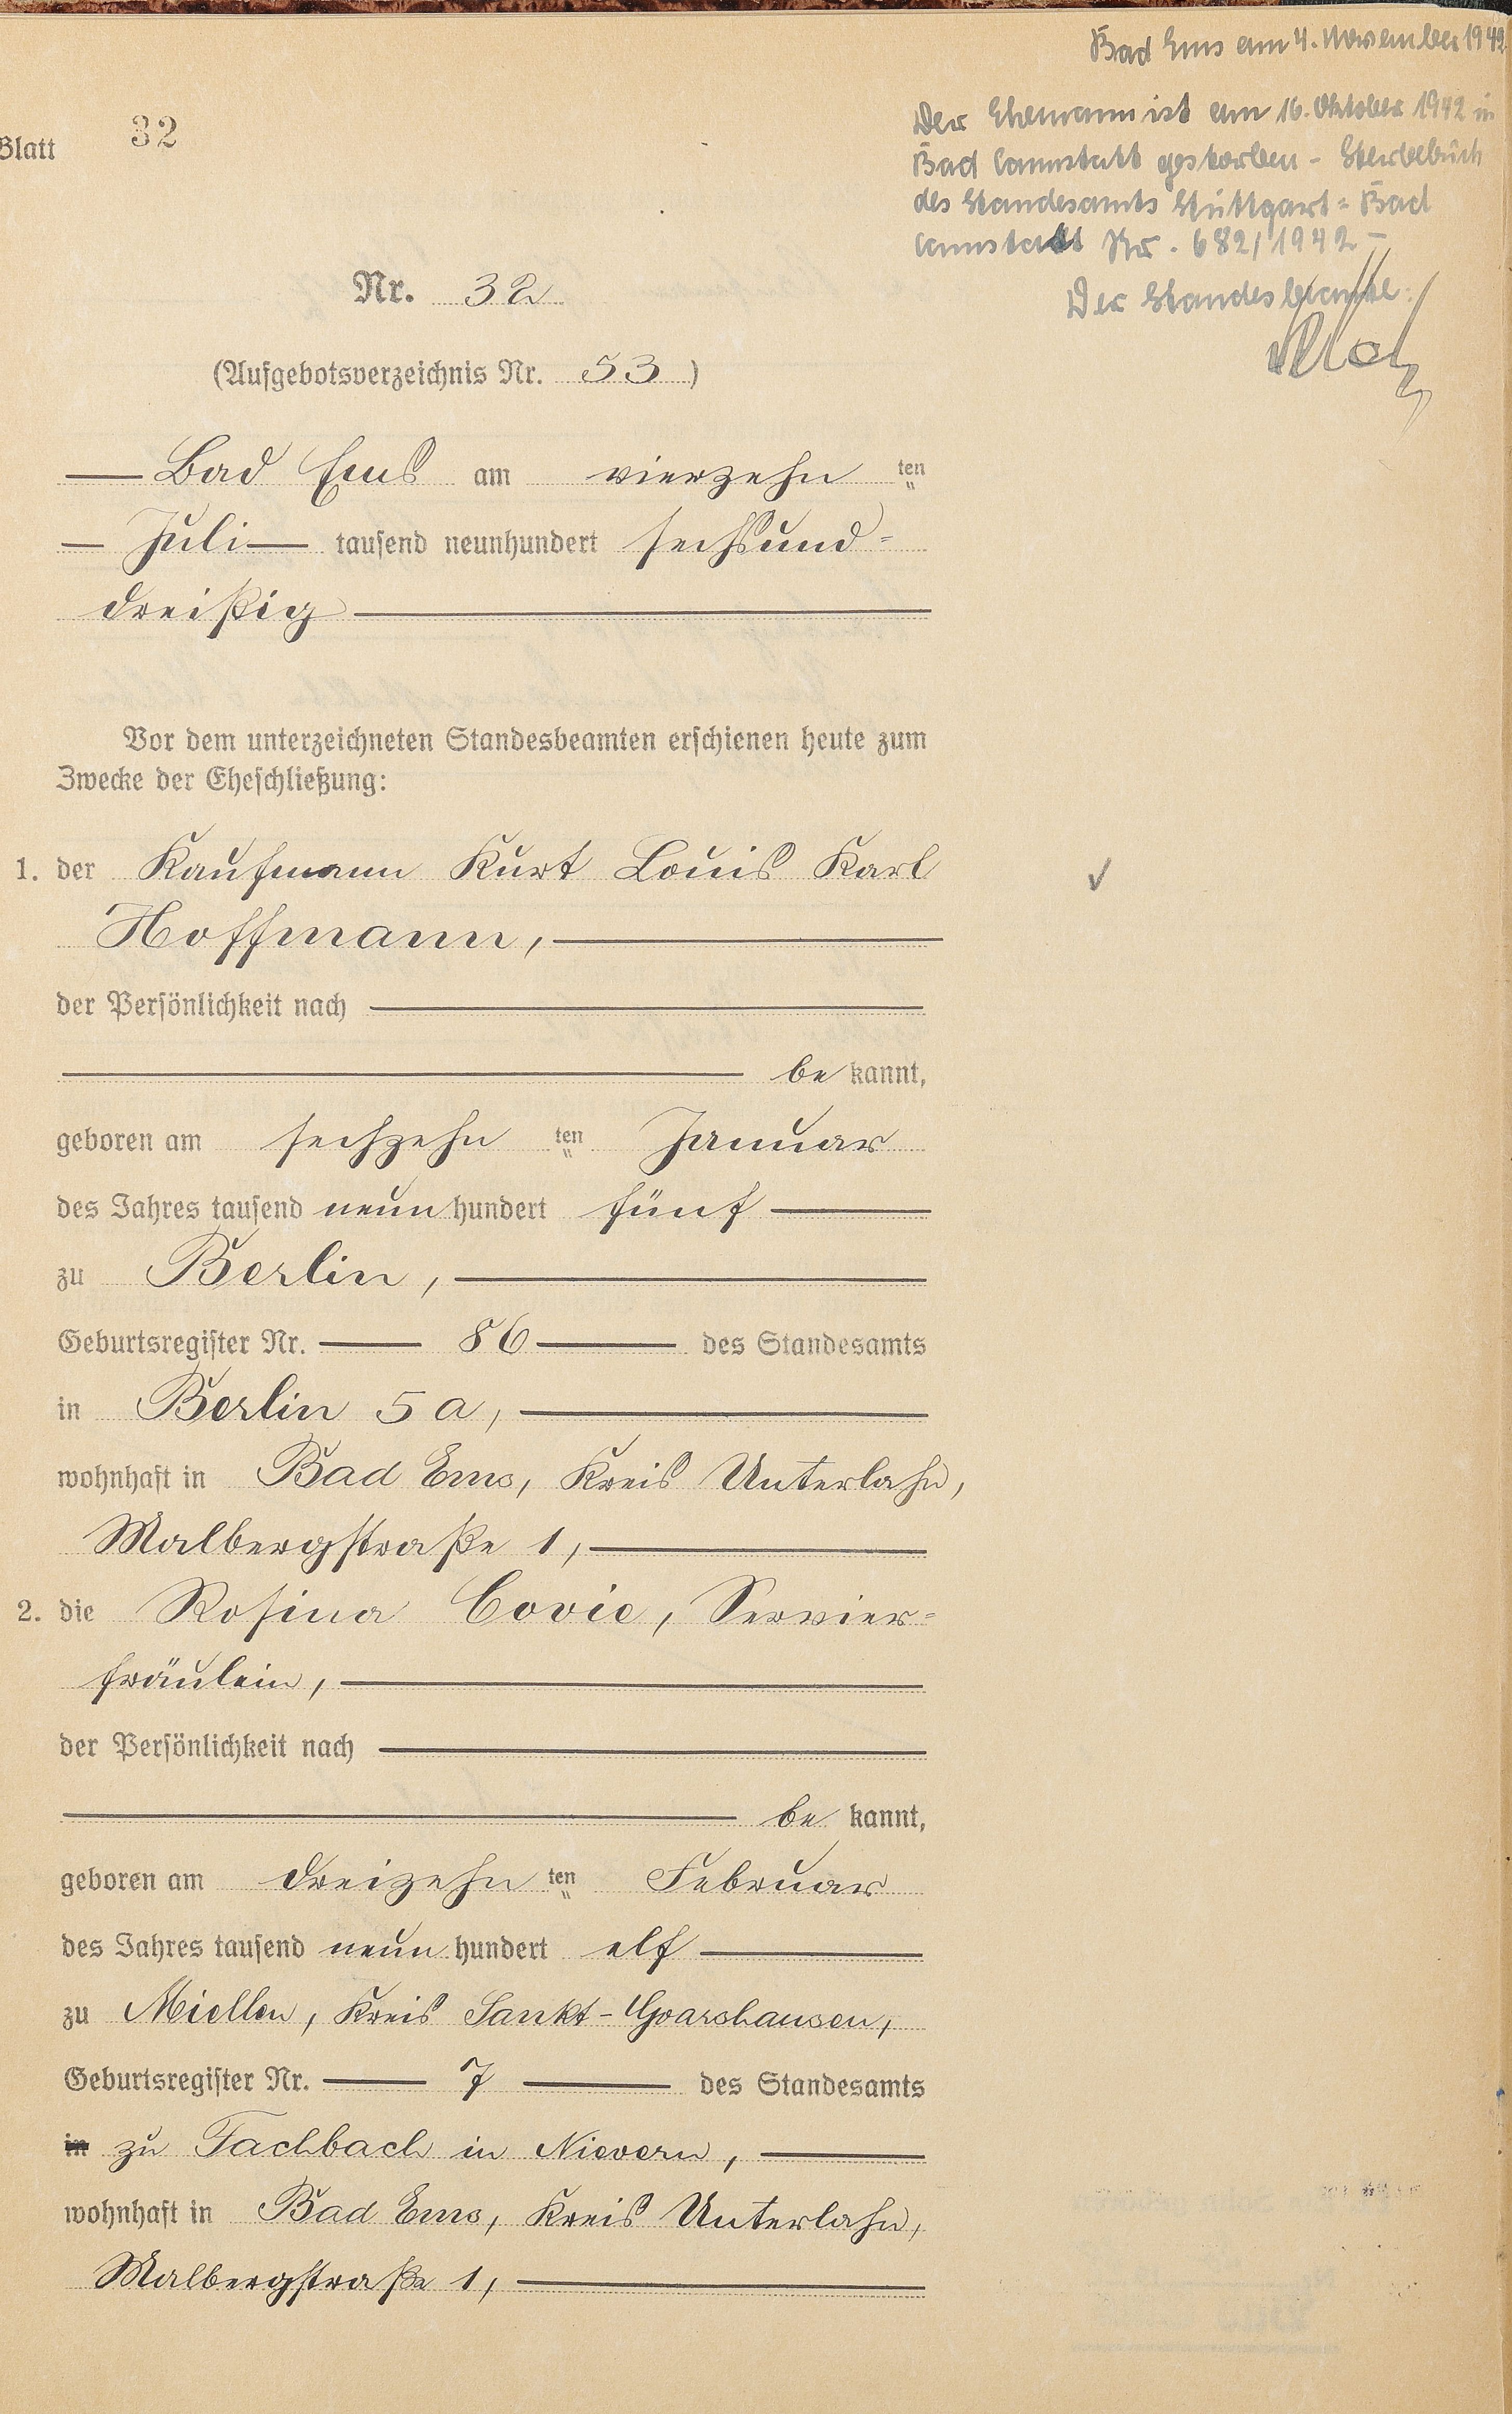 Bad Ems am 4. November 1942
Der Ehemann ist am 16. Oktober 1942 in
Bad Cannstatt gestorben - Sterbebuch
des Standesamts Stuttgart = Bad
Cannstatt Nr. 682/1942 -
Der Standesbeamte:
Blatt 32
Nr. 32
(Aufgebotsverzeichnis Nr. 53)
— Bad Ems am vierzehn ten
— Juli — tausend neunhundert sechsund=
dreißig —
Vor dem unterzeichneten Standesbeamten erschienen heute zum
Zwecke der Eheschließung:
1. der Kaufmann Kurt Louis Karl
Hoffmann, —
der Persönlichkeit nach —
— be kannt,
geboren am sechzehn ten Januar
des Jahres tausend neun hundert fünf —
zu Berlin, —
Geburtsregister Nr. — 86 — des Standesamts
in Berlin 5a, —
wohnhaft in Bad Ems, Kreis Unterlahn,
Malbergstraße 1, —
2. die Rosina Covic, Servier=
fräulein, —
der Persönlichkeit nach —
— be kannt,
geboren am dreizehn ten Februar
des Jahres tausend neun hundert elf —
zu Miellen, Kreis Sankt-Goarshausen,
Geburtsregister Nr. — 7 — des Standesamts
in zu Fachbach in Nievern, —
wohnhaft in Bad Ems, Kreis Unterlahn,
Malbergstraße 1, —